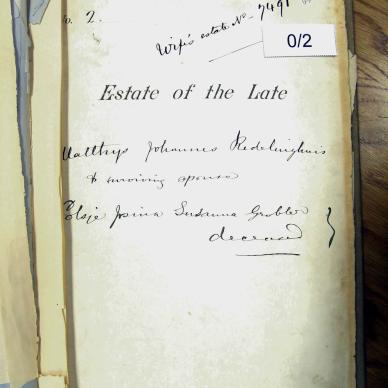 No. 2.
Wife's estate No. 7491
0/2
Estate of the Late
Matthys Johannes Redelinghuis
& surviving spouse
Elsje Josina Susanna Grobler
deceased